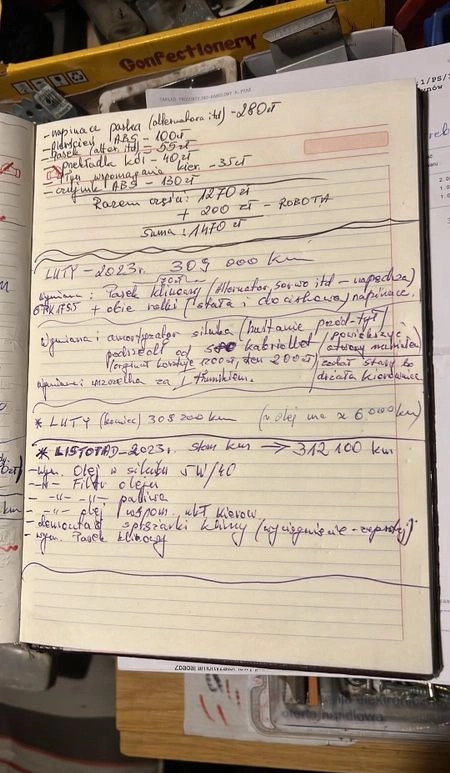 Confectionery
- napinacz paska (alternatora itd) - 280 zł
- pierścień ABS - 100 zł
- Pasek (alter. itd) - 55 zł
- przekładka kół - 40 zł
- Płyn wspomagania kier. - 35 zł
- czujnik ABS - 130 zł
Razem części: 1270 zł
+ 200 zł - ROBOTA
Suma: 1470 zł
LUTY - 2023r. 309 000 km
wymiana: Pasek klinowy (alternator, serwo itd - napędza)
6PK1755 + obie rolki (stała i dociskowa) napinacz.
wymiana: amortyzator silnika (bujanie przód-tył)
podszedł od kabriollet
(oryginał kosztuje 1200 zł, ten 200 zł)
powiększyć
otwory
został stary bo
działa
wymiana: uszczelka za 1 tłumikiem.
* LUTY (koniec) 309 200 km (olej ma x 6000 km)
* LISTOPAD - 2023r. stan km → 312 100 km
- wym. Olej w silniku 5W/40
- -"- Filtr oleju
- -"- -"- paliwa
- -"- olej wspom. ukł kierow
- demontaż sprężarki klimy (wyciągnięcie - )
- wym. Pasek klinowy